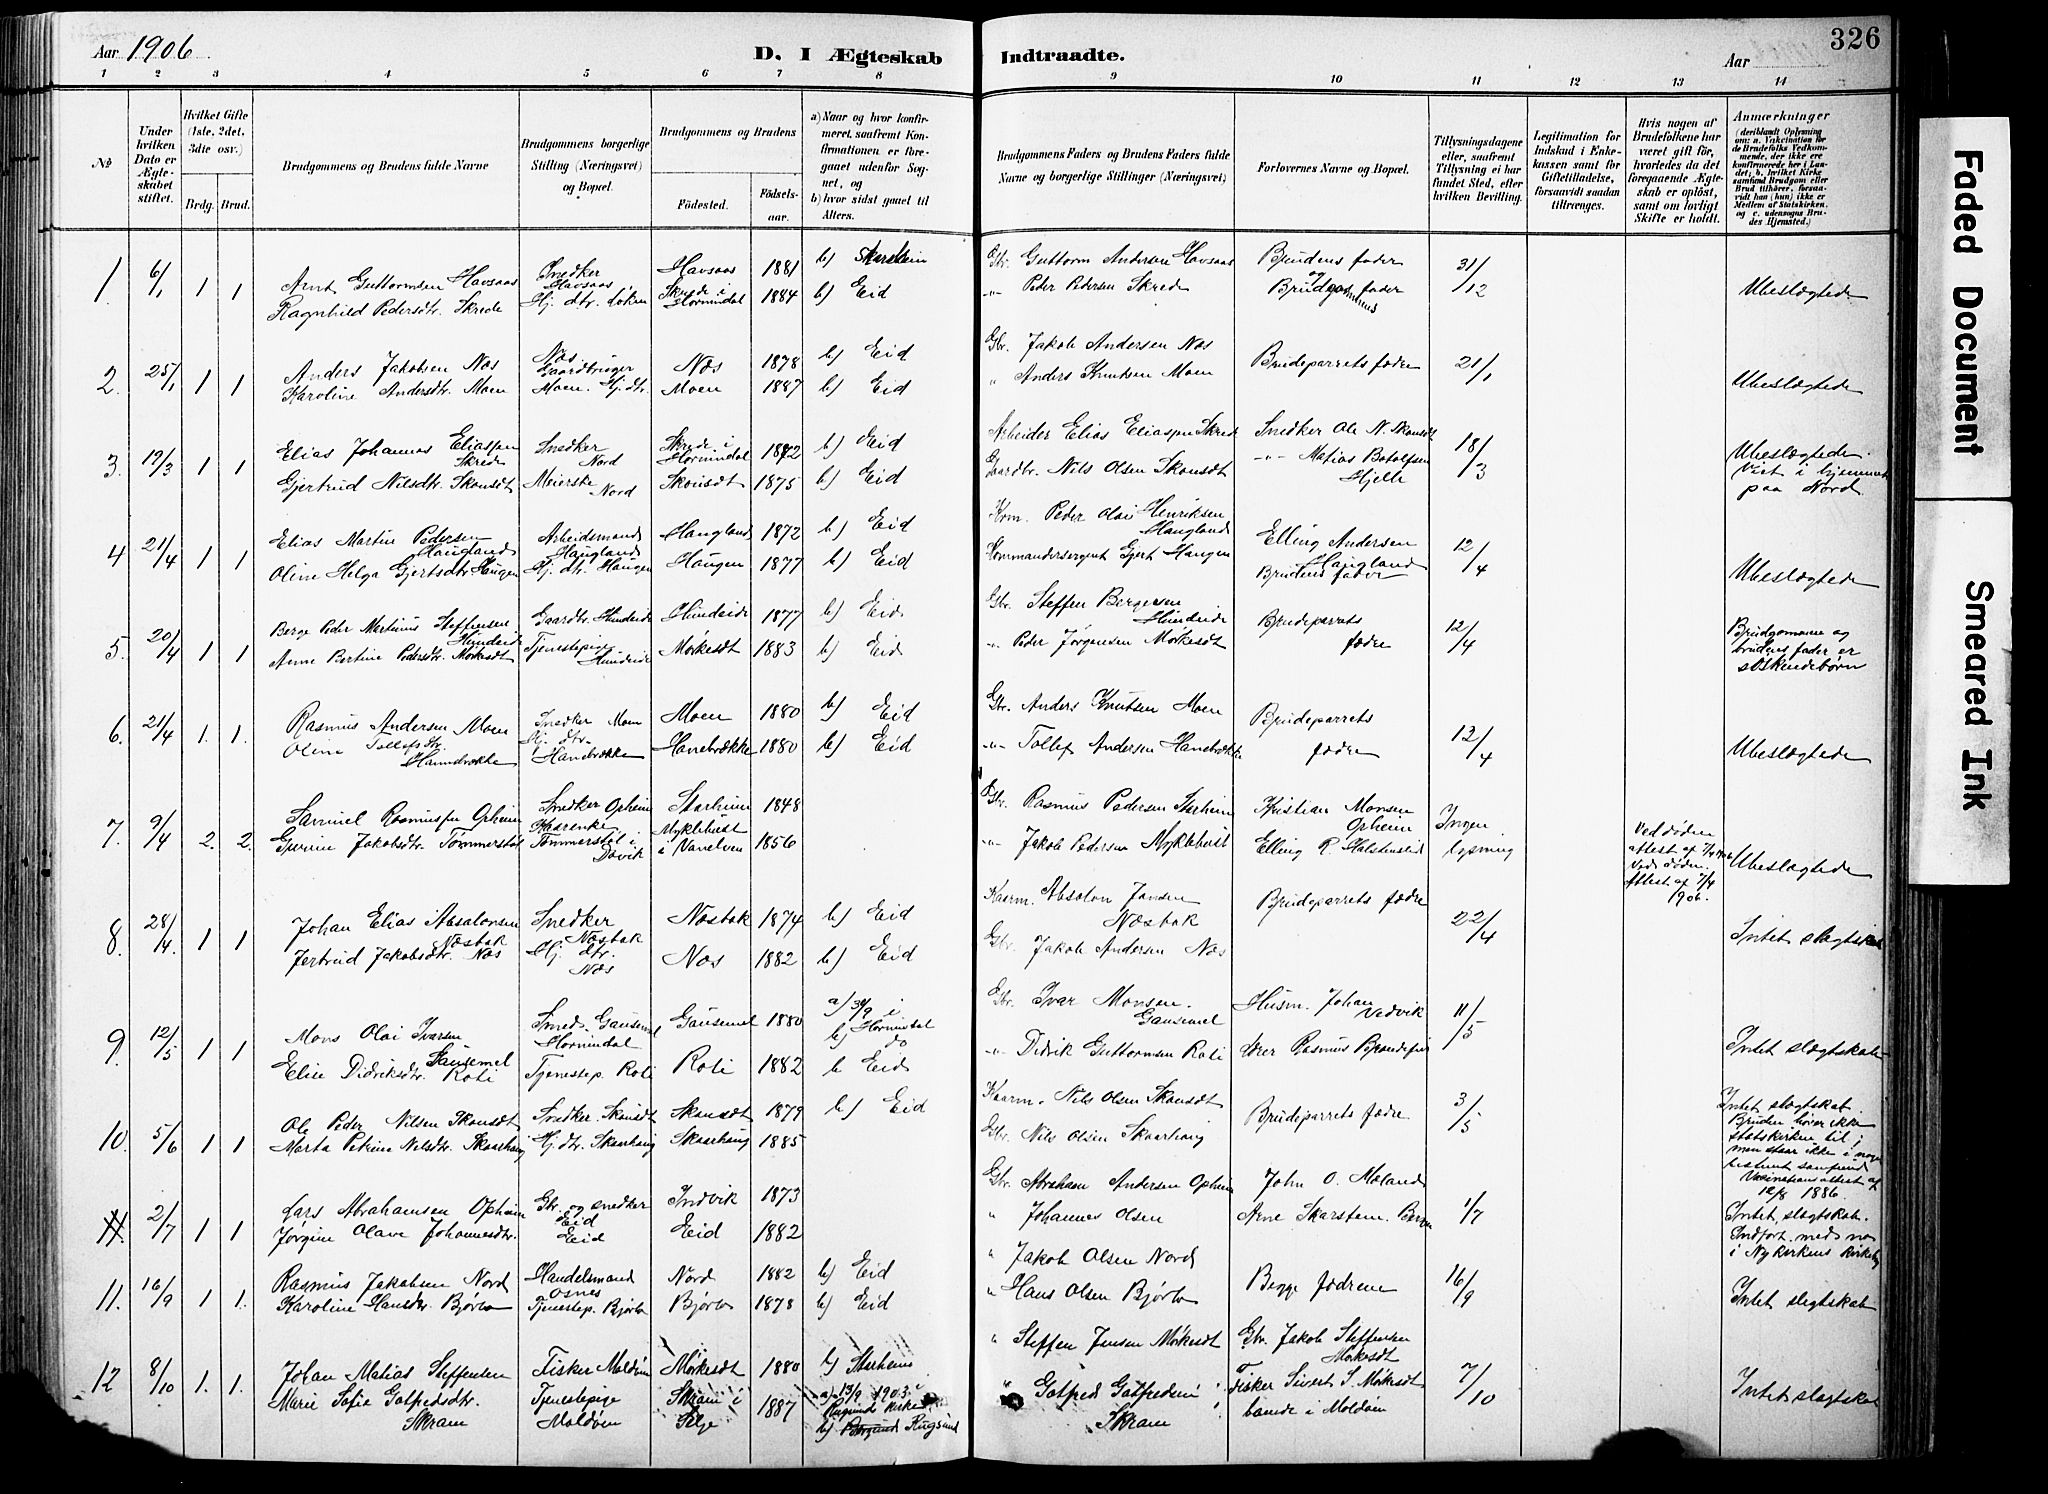 326
Aar 1906
D. I Ægteskab Indtraadte.
Aar
1 2 3 4 5 6 7 8 9 10 11 12 13 14
№
Under hvilken Dato er Ægteskabet stiftet.
Hvilket Gifte (1ste, 2det, 3die osv.)
Brdg. Brud.
Brudgommens og Brudens fulde Navne
Brudgommens borgerlige Stilling (Næringsvei) og Bopæl.
Brudgommens og Brudens
Fødested.
Fødselsaar.
a) Naar og hvor konfirmeret, saafremt Konfirmationen er foregaaet udenfor Sognet, og
b) hvor sidst gaaet til Alters.
Brudgommens Faders og Brudens Faders fulde Navne og borgerlige Stillinger (Næringsvei)
Forlovernes Navne og Bopæl.
Tillysningsdagene eller, saafremt Tillysning ei har fundet Sted, efter hvilken Bevilling.
Legitimation for Indskud i Enkekassen samt for Giftetilladelse, forsaavidt saadan tiltrænges.
Hvis nogen af Brudefolkene har været gift før, hvorledes da det foregaaende Ægteskab er opløst, samt om lovligt Skifte er holdt.
Anmærkninger
(deriblandt Oplysning om: a. Vakcination for de Brudefolks Vedkommende, der ikke ere konfirmerede her i Landet; b. hvilket Kirkesamfund Brudgom eller Brud tilhører, forsaavidt han (hun) ikke er Medlem af Statskirken, og c. udensogns Brudes Hjemsted.)
1 6/1 1 1
Arnt Guttormsen Havsaas Snedker Havsaas Havsaas 1881 b) Starheim Gbr. Guttorm Andersen Havsaas Brudens fader 31/12
Ragnhild Pedersdtr. Skrede Hj. dtr. Løken Skrede i Hornindal 1884 b) Eid " Peder Pedersen Skrede og Brudgommens fader Ubeslægtede
2. 25/1 1 1
Anders Jakobsen Nos Nos Gaardbruger Nos 1878 b) Eid Gbr. Jakob Andersen Nos Brudeparrets fædre 21/1
Karoline Andersdtr. Moen Moen. Hj. dtr. Moen 1887 b) Eid " Anders Knutsen Moen Ubeslægtede
3. 19/3 1 1
Elias Johannes Eliassen Skrede Snedker Nord Skrede i Hornindal 1872 b) Eid Arbeider Elias Eliassen Skrede Snedker Ole N. Skousdt 18/3 Ubeslægtede.
Gjertrud Nilsdtr. Skousdt Meierske Nord Skousdt 1875 b) Eid Gaardbr. Nils Olsen Skousdt Matias Botolfsen Hjelle Viet i hjemmet paa Nord.
4 21/4 1 1
Elias Martin Pedersen Haugland Arbeidsmand Haugland Haugland 1872 b) Eid Peder Olai Henriksen Haugland Elling Andersen Haugland 12/4
Oline Helga Gjertsdtr. Haugen Hj. dtr. Haugen Haugen 1877 b) Eid Kommandersergent Gjert Haugen Brudens fader Ubeslægtede
5. 20/4 1 1
Berge Peder Martinus Steffensen Hundeide Gaardbr. Hundeide Hundeide 1877 b) Eid. Gbr. Steffen Bergesen Hundeide Brudeparrets fædre 12/4
Anne Bertine Pedersdtr. Mørkesdt Tjenestepige Hundeide Mørkesdt 1883 b) Eid " Peder Jørgensen Mørkesdt Brudgommen og brudens fader er søskendebørn
6. 21/4 1. 1.
Rasmus Andersen Moen Snedker Moen Moen 1880 b) Eid Gbr. Anders Knutsen Moen Brudeparrets fædre 12/4
Oline Tollefsdtr. Hannebrække Hj. dtr. Hanebrække Hanebrække 1880 b) Eid " Tollef Andersen Hanebrække Ubeslægtede
7. 9/4 2. 2.
Samuel Rasmussen Opheim Snedker Opheim Starheim 1848 Gbr. Rasmus Pedersen Starheim Kristian Monsen Opheim Ingen lysning Ved døden attest af
Jakobsdtr. Tømmerstøl Tømmerstøl i Davik Myklebust i Vanelven 1856 " Jakob Pedersen Myklebust Elling R. Ved døden Attest af 7/4 1906. Ubeslægtede
8. 28/4. 1 1
Johan Elias Absalonsen Næsbak Snedker Næsbak Næsbak 1874 b) Eid Kaarm. Absalon Jansen Næsbak Brudeparrets fædre 22/4
Jertrud Jakobsdtr. Nos Hj. dtr. Nos Nos 1882 b) Eid Gbr. Jakob Andersen Nos Intet slægtskab
9. 12/5 1 1
Mons Olai Ivarsen Gausemel Smed Gausemel Hornindal Gausemel 1880 a) i Hornindal b) do Gbr. Ivar Monsen Gausemel Husm. Johan Vedvik 11/5
Elise Didriksdtr. Roti Tjenestep. Roti Roti 1882 b Eid " Didrik Guttormsen Roti Lærer Rasmus Intet slægtskab
10. 5/6 1 1
Ole Peder Nilsen Skousdt Snedker. Skousdt Skousdt 1879 b) Eid Kaarm. Nils Olsen Skousdt Brudeparrets fædre 3/5 Intet slægtskab.
Marta Petrine Nilsdtr. Skaarhaug Hj. dtr. Skaarhaug Skaarhaug 1885 Gbr. Nils Olsen Skaarhaug Bruden hører ikke statskirken til; men staar ikke i noget bestemt samfund Vaccinationsattest af 12/8 1886.
11. 2/7 1 1
Lars Abrahamsen Opheim Gbr. og snedker Eid Indvik 1873 Gbr. Abraham Andersen Opheim John O. Moland 1/7 Intet slægtskab.
Jørgine Olave Johannesdtr. Eid Eid 1882 " Johannes Olsen Arne Skarstem. Bergen Indført med no i Nykirkens kirkebog
11. 16/9 1 1.
Rasmus Jakobsen Nord Handelsmand Osnes Nord 1882 b) Eid " Jakob Olsen Nord Begge fædrene 16/9
Karoline Hansdtr. Bjørlo Tjenestep. Bjørlo Bjørlo 1878 b) Eid " Hans Olsen Bjørlo Intet slægtskab
12 8/10 1. 1.
Johan Matias Steffensen Fisker Moldøen Mørkesdt 1880 b) Starheim " Steffen Jensen Mørkesdt Gbr. Jakob Steffensen Mørkesdt 7/10
Marie Sofie Gotfredsdtr. Skram Tjenestepige Moldøen Skram i Selje 1887 a) 13/9 1903 i Rugsund kirke b) Rugsund " Gotfred Gotfredsen Skram Fisker Sivert S. Mørkesdt boende i Moldøen Intet slægtskab
Faded Document
Smeared Ink